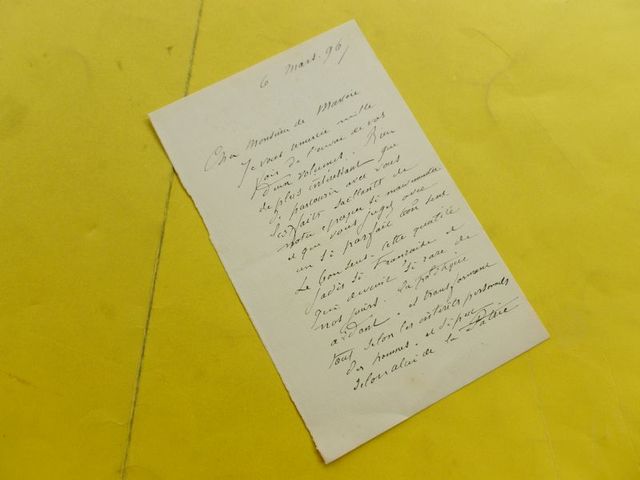 6 Mars. 96
Cher Monsieur de Marcère
Je vous remercie mille
fois de l'envoi de vos
deux volumes. Rien
de plus intéressant que
de parcourir avec vous
les faits saillants de
notre époque si mouvementée
et que vous jugez avec
un si parfait bon sens
Le bon sens. cette qualité
jadis si française et
qui devient si rare de
nos jours. La politique
a tout et transformé
tout selon les intérêts personnels
des hommes. et si peu
selon celui de la Patrie